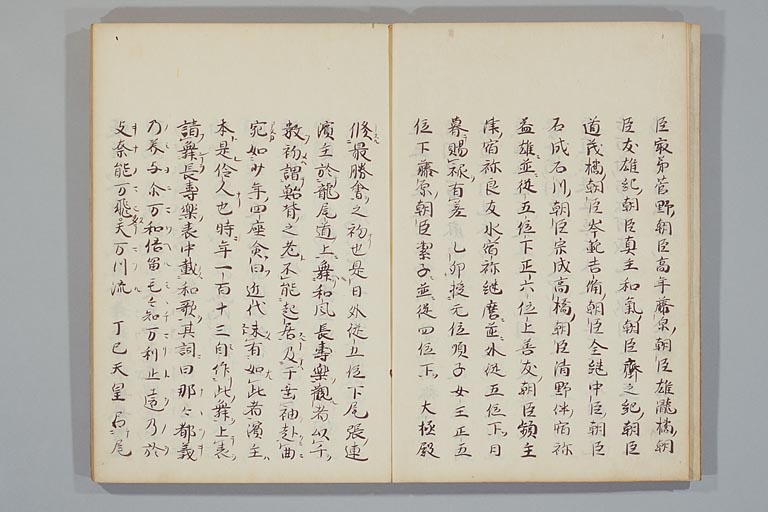 臣家弟菅野朝臣高年藤原朝臣雄瀧橘朝
臣友雄紀朝臣真主和氣朝臣齊之紀朝臣
道茂橘朝臣岑範吉備朝臣全継中臣朝臣
石成石川朝臣宗成高橋朝臣清野伴宿祢
益雄並從五位下正六位上善友朝臣頴主
宿祢良友水宿祢継麿並外從五位下日
暮賜祿有差 乙卯授无位頂子女王正五
位下藤原朝臣潔子並從四位下 大極殿
修最勝會之初也是日外從五位下尾張連
濱主於龍尾道上舞和風長壽樂觀者以千
數初謂鮐背之老不能起居及于垂袖赴曲
宛如少年四座僉曰近代未有如此者濱主
本是伶人也時年一百十三自作此舞上表
請舞長壽樂表中載和歌其詞曰那々都義
乃美与尓万和倍留毛々知万利止遠乃於
支奈能万飛天万川流 丁巳天皇召尾